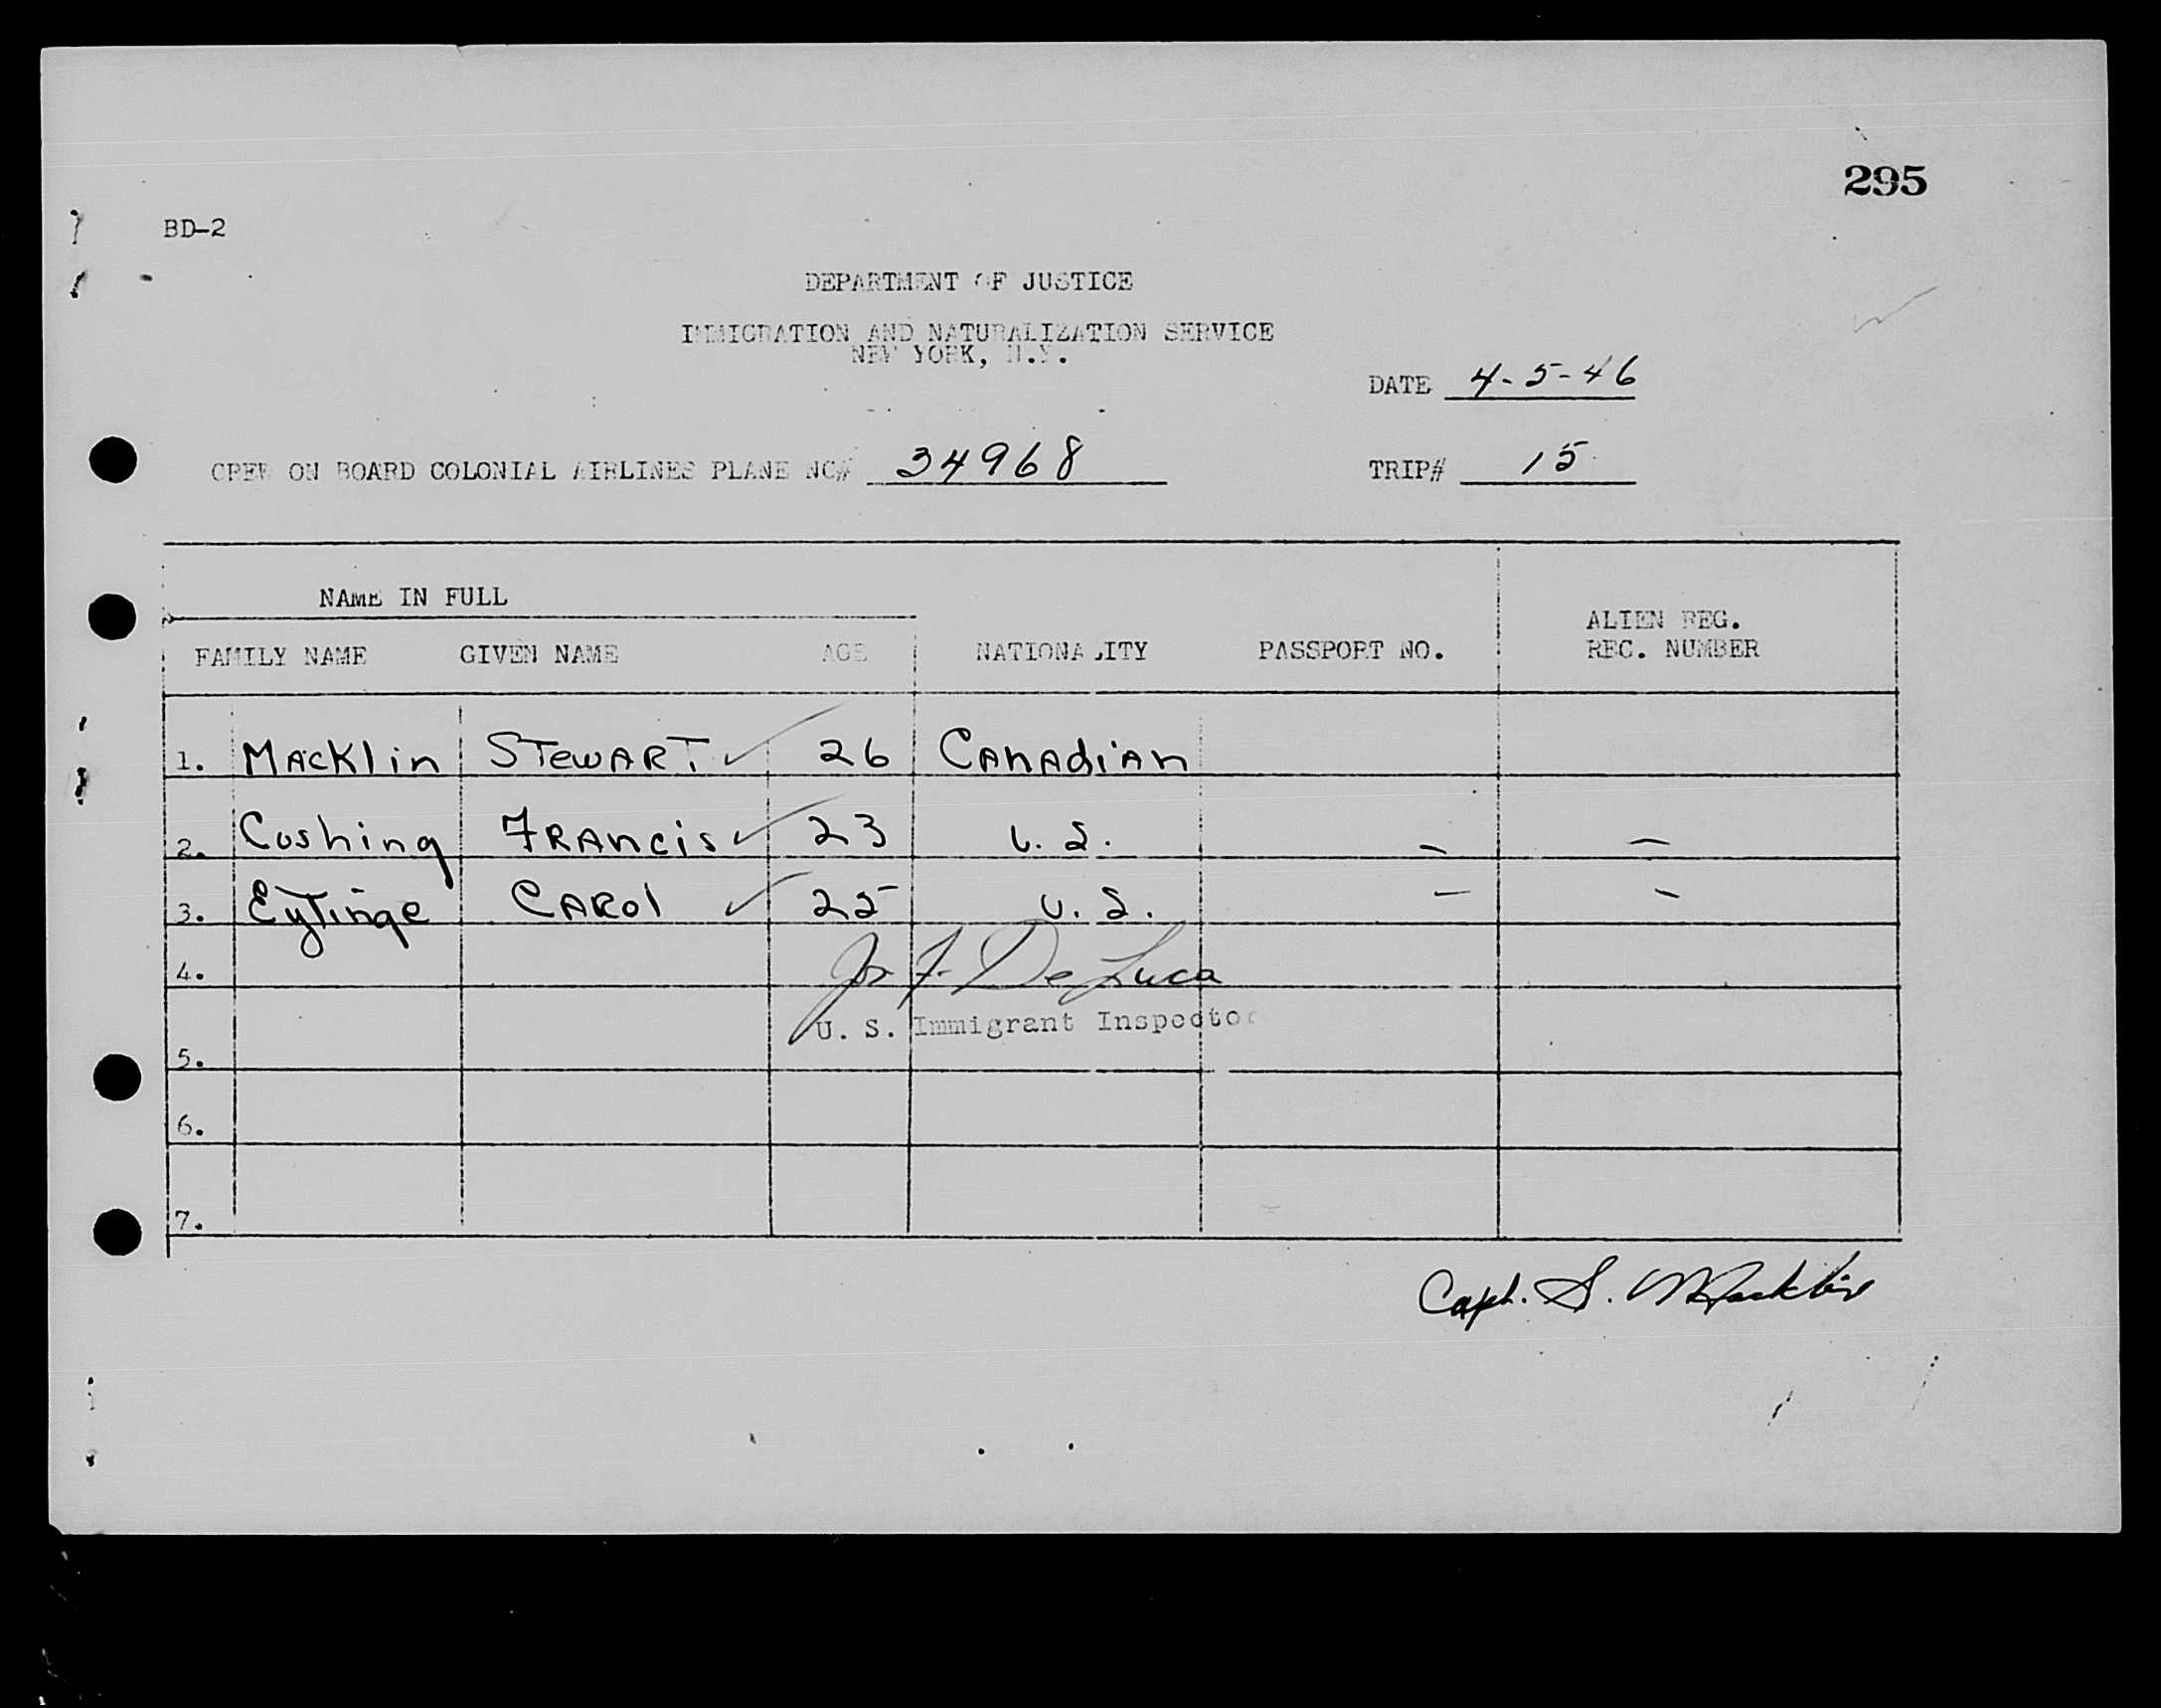 295
BD-2
DEPARTMENT OF JUSTICE
IMMIGRATION AND NATURALIZATION SERVICE
NEW YORK, N.Y.
DATE 4-5-46
CREW ON BOARD COLONIAL AIRLINES PLANE NC# 34968 TRIP# 15
NAME IN FULL
FAMILY NAME GIVEN NAME AGE NATIONALITY PASSPORT NO. ALIEN REG. REC. NUMBER
1. MACKlin STewART 26 CANAdiAN
2. Cushing FRANcis 23 U.S. — —
3. EyTinge CARol 25 U.S. — —
4. Jos F. DeLuca
U. S. Immigrant Inspector
5.
6.
7.
Capt. S. Macklin